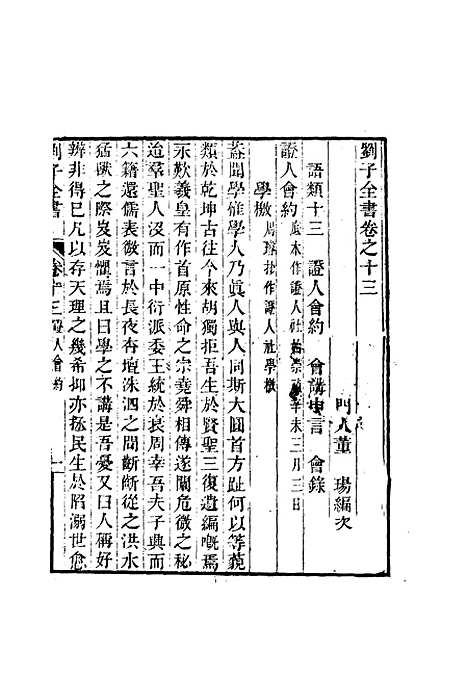 劉子全書卷之十三
門人董　瑒編次
語類十三　證人會約　會講申言　會錄
證人會約　底本作證人社　崇　辛未三月三日
學檄　作證人社學檄
蓋聞學雖學人乃眞人與人同斯大圓首方趾何以等蓻
類於乾坤古往今來胡獨拒吾生於賢聖三復遺編嘅焉
永歎羲皇有作首原性命之宗堯舜相傳遂闢危微之秘
迨羣聖人沒而一中衍派委王統於衰周幸吾夫子興而
六籍還儒表微言於長夜杏壇洙泗之間斷斷從之洪水
猛獸之際岌岌懼焉且曰學之不講是吾憂又曰人稱好
辨非得已凡以存天理之幾希抑亦拯民生於陷溺世愈
劉子全書
卷十三證人會約
一